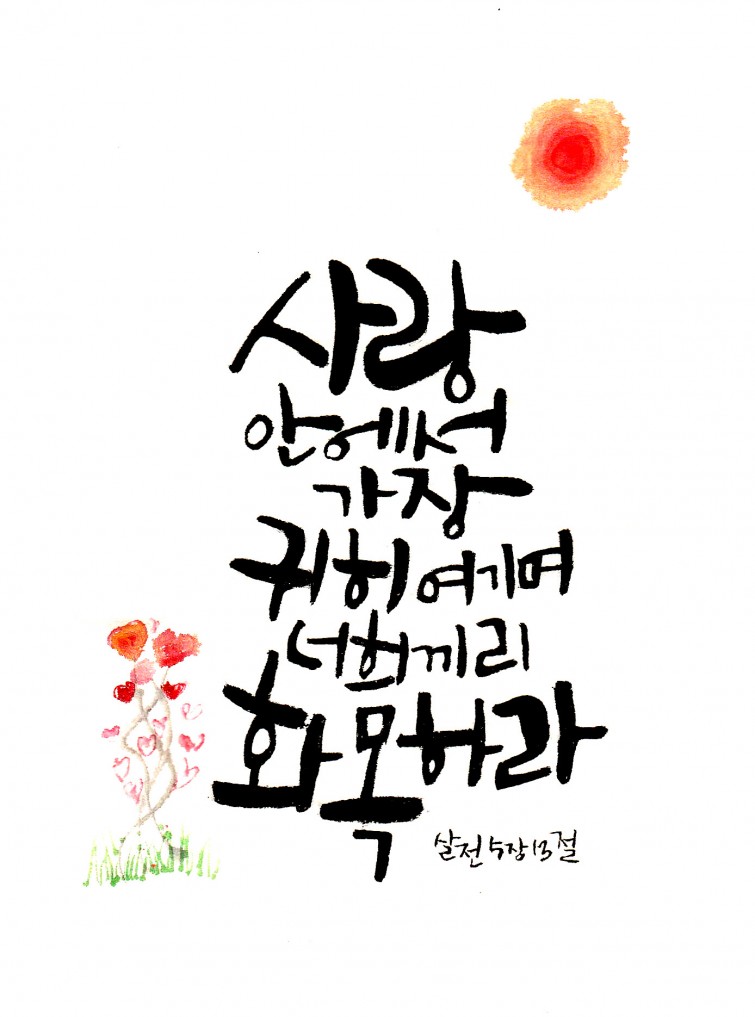 사랑
안에서
가장
귀히 여기며
너희끼리
화목하라
살전 5장 13절